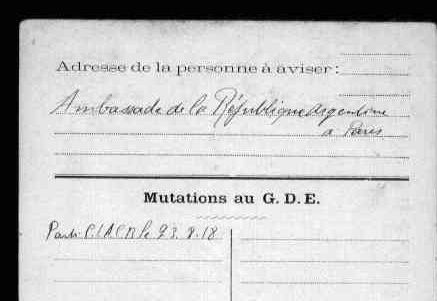 Adresse de la personne à aviser :
Ambassade de la République Argentine
a Paris
Mutations au G. D. E.
Parti C I A C B le 23. 8. 18